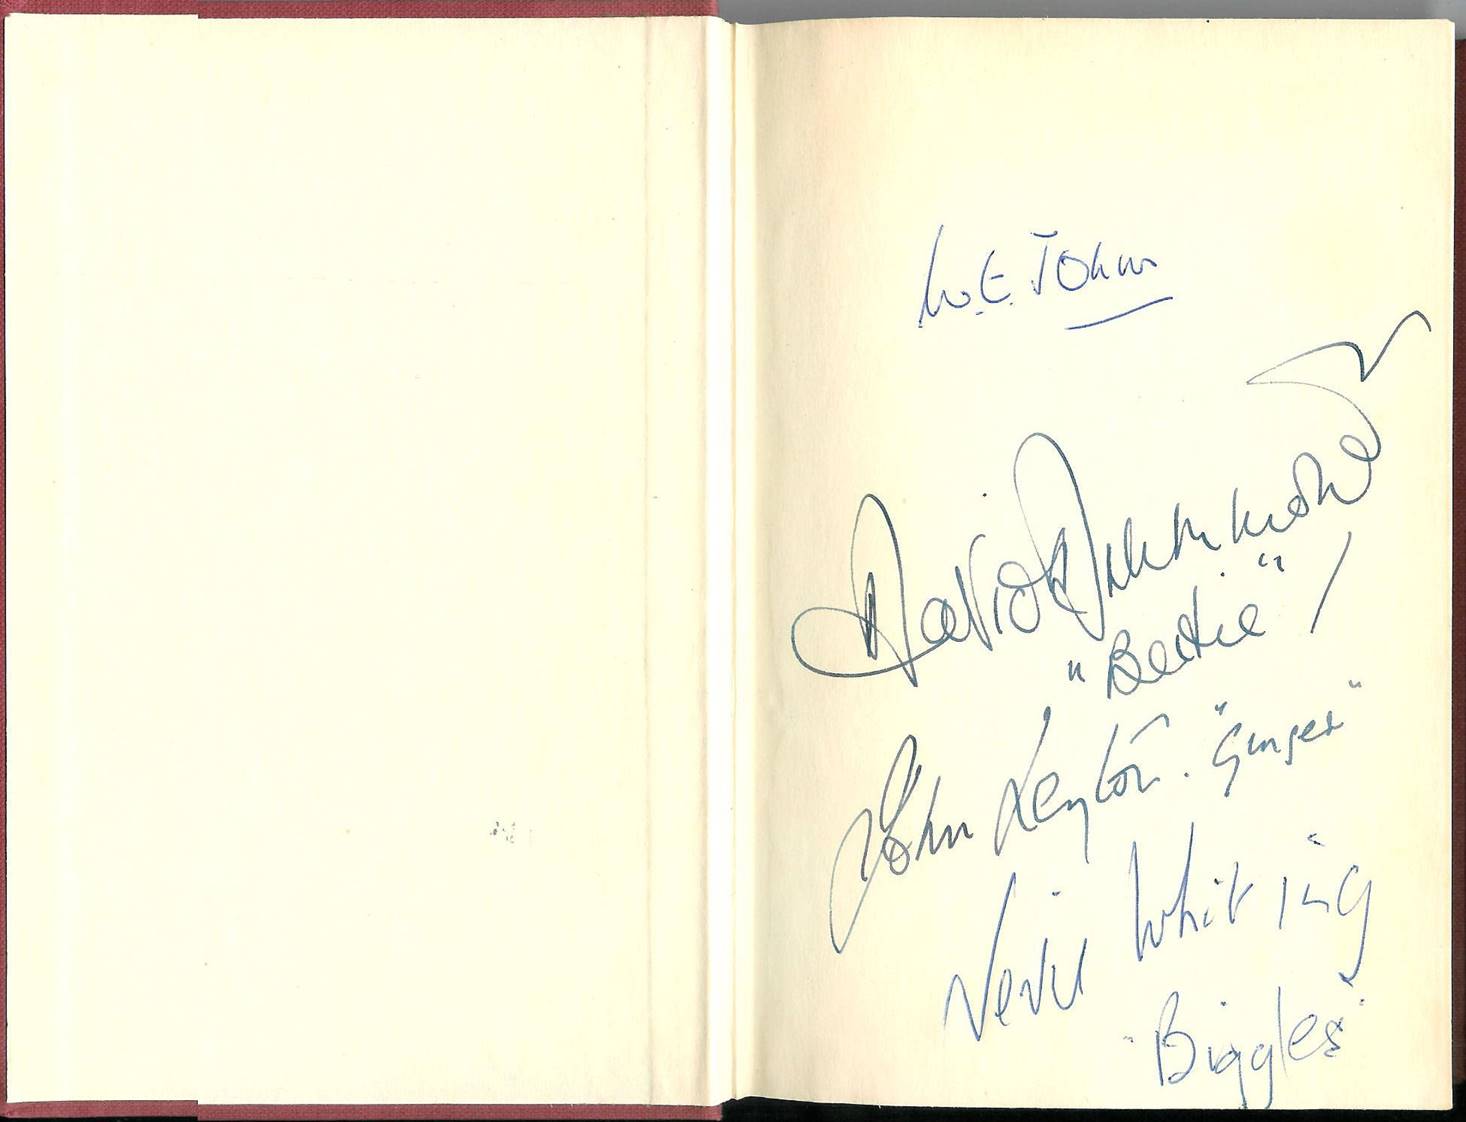 W.E. Johns
David Drummond
"Bertie"
John Leyton. "Ginger"
Nevil Whiting
"Biggles"